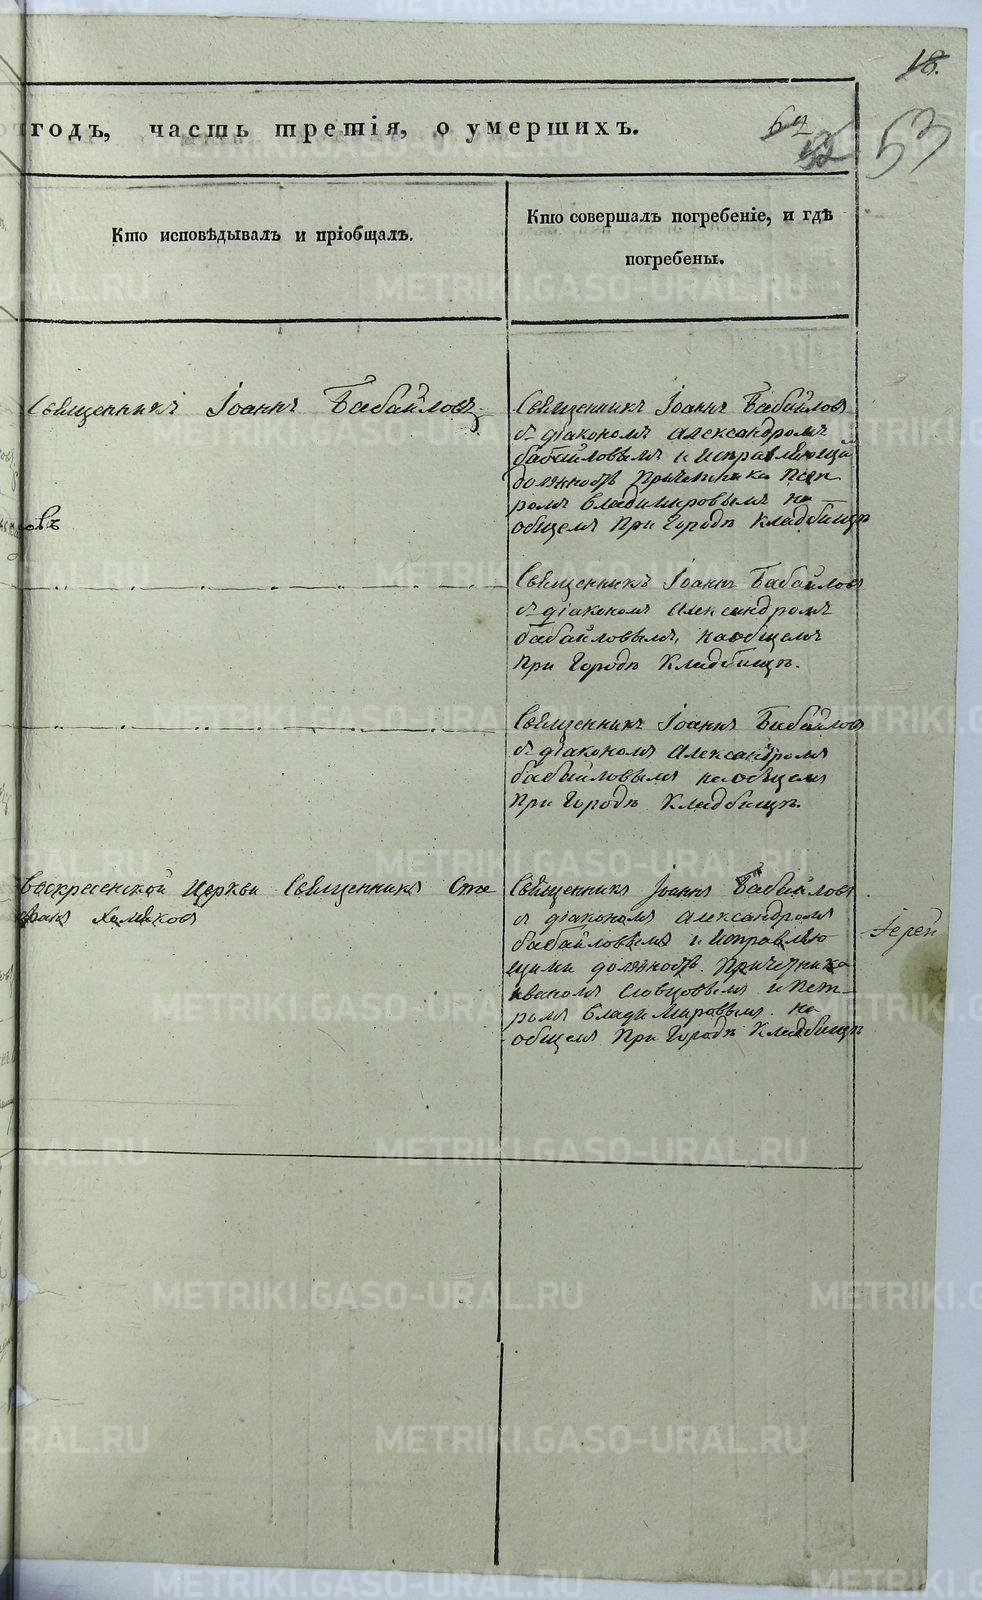 18.
годъ, часть третія, о умершихъ.
69
52
53
Кто исповѣдывалъ и пріобщалъ.
Кто совершалъ погребеніе, и гдѣ
погребены.
Священникъ Іоаннъ Бабайловъ
Священникъ Іоаннъ Бабайловъ
съ діакономъ Александромъ
бабайловымъ и исправляющи
должность Причетника Пет
ромъ Владимировымъ на
общемъ при городѣ кладбищѣ
овъ
Священникъ Іоаннъ Бабайловъ
съ діакономъ Александромъ
бабайловымъ, на общемъ
при городѣ Кладбищѣ.
Священникъ Іоаннъ Бабайловъ
съ діакономъ Александромъ
бабайловымъ на общемъ
при городѣ Кладбищѣ.
Воскресенской Церкви Священникъ Сте
фанъ Хомяковъ
Священникъ Іоаннъ Бабайловъ
съ діакономъ Александромъ
бабайловымъ и исправляю
щими должность Причетника
иваномъ Словцовымъ и Пет
ромъ Владимировымъ на
общемъ при городѣ Кладбищѣ
Іерей
METRIKI.GASO-URAL.RU